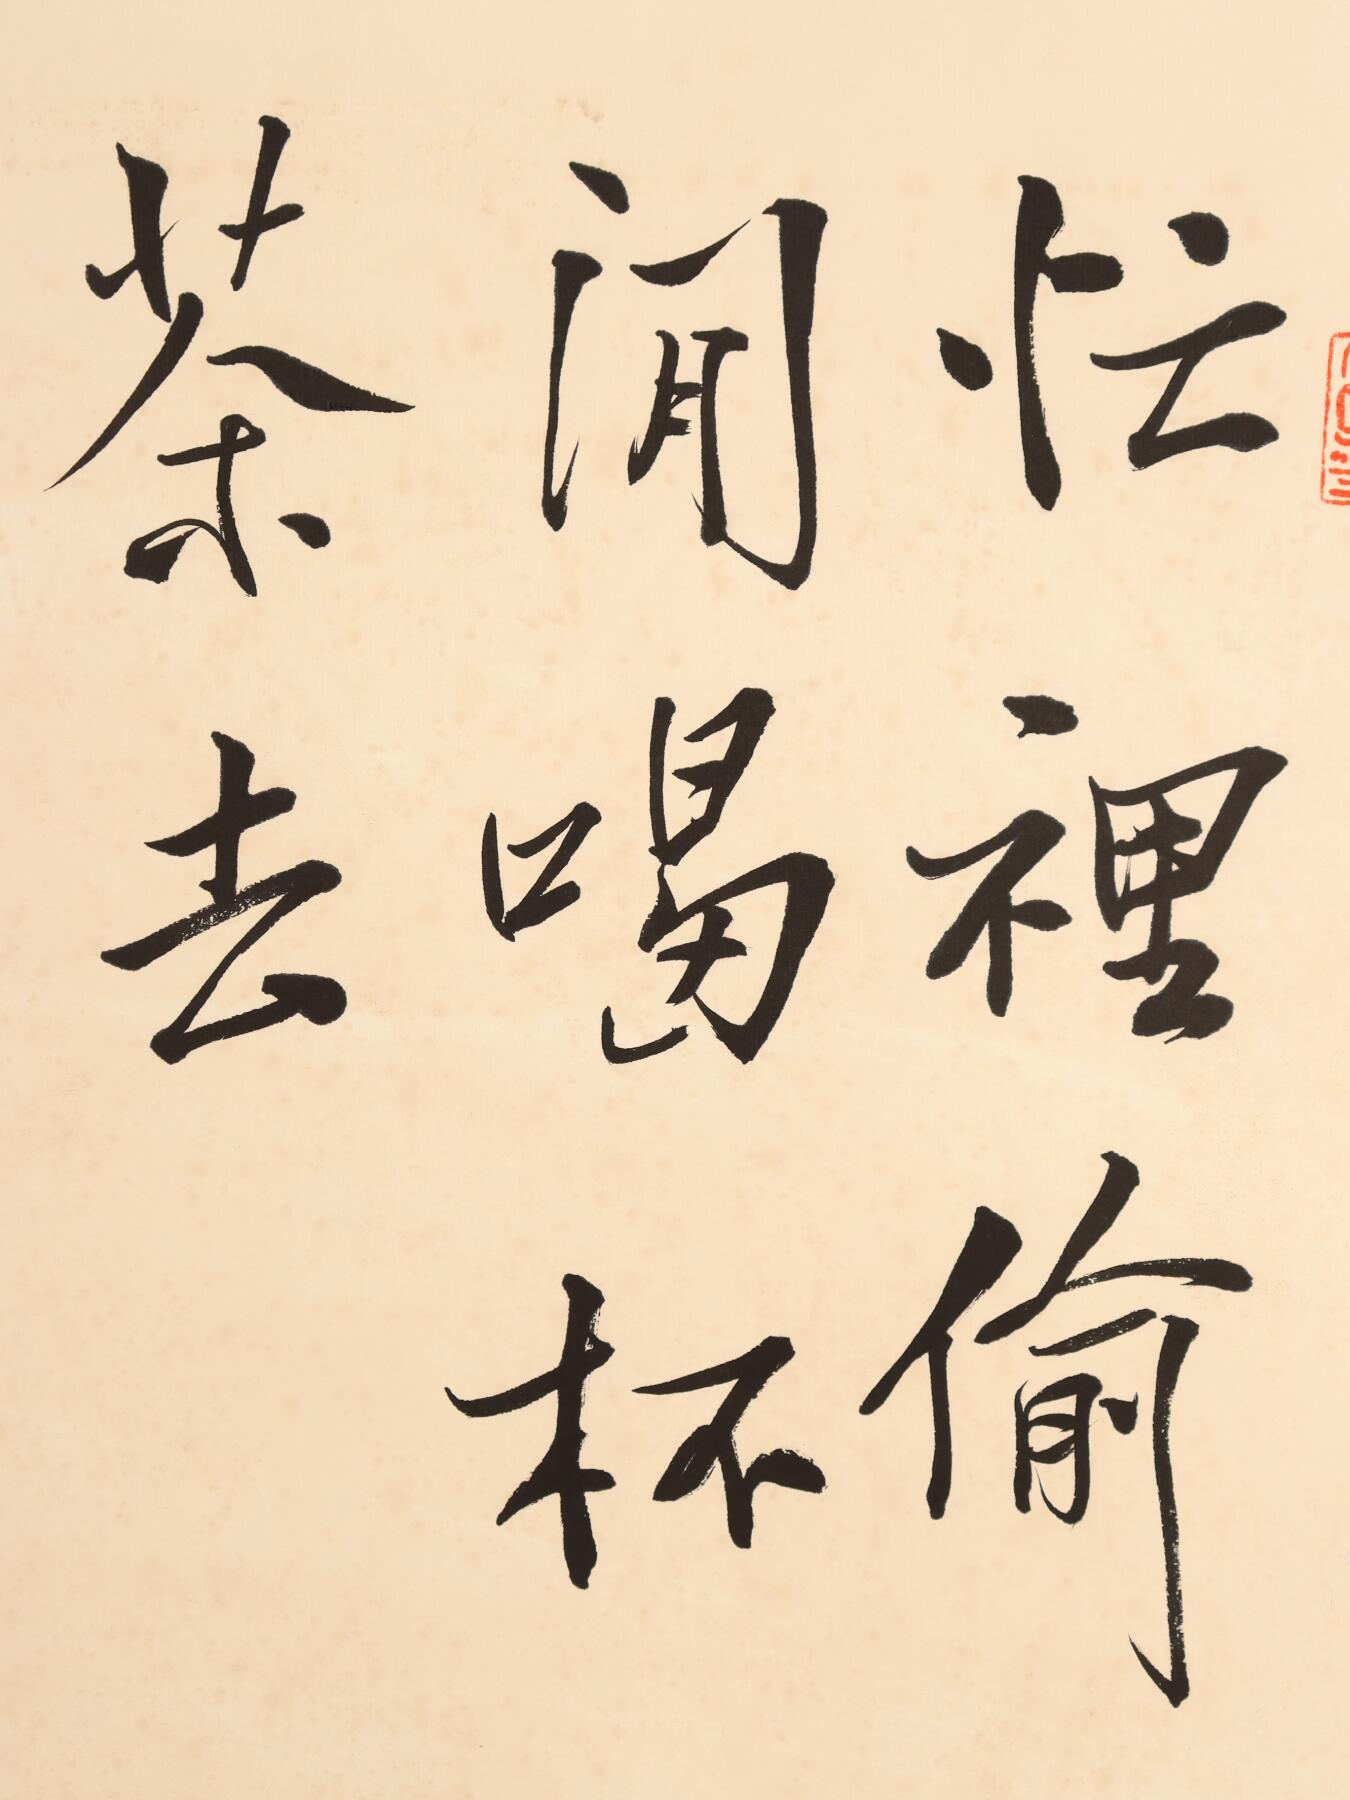 忙裡偷
閒喝杯
茶去